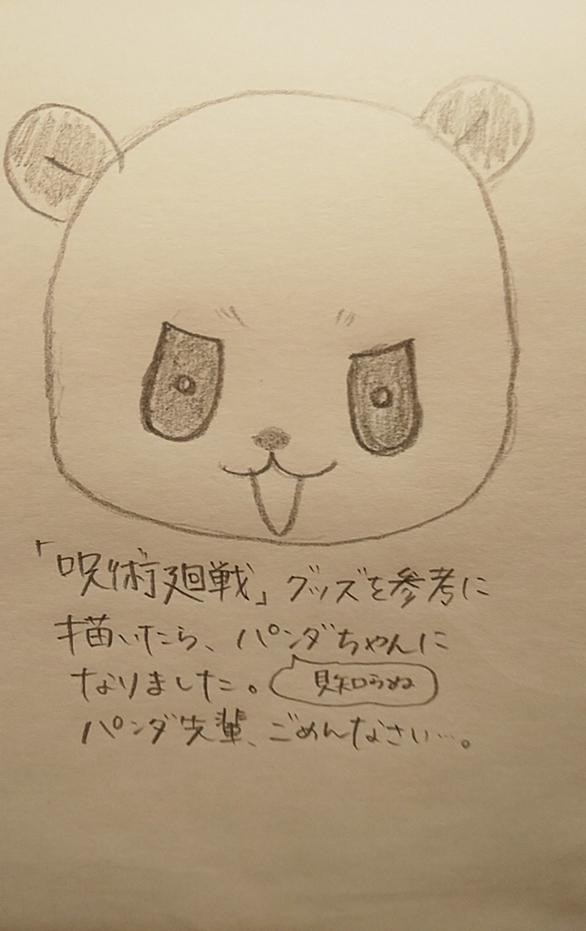 「呪術廻戦」グッズを参考に
描いたら、パンダちゃんに
なりました。
パンダ先輩、ごめんなさい…。